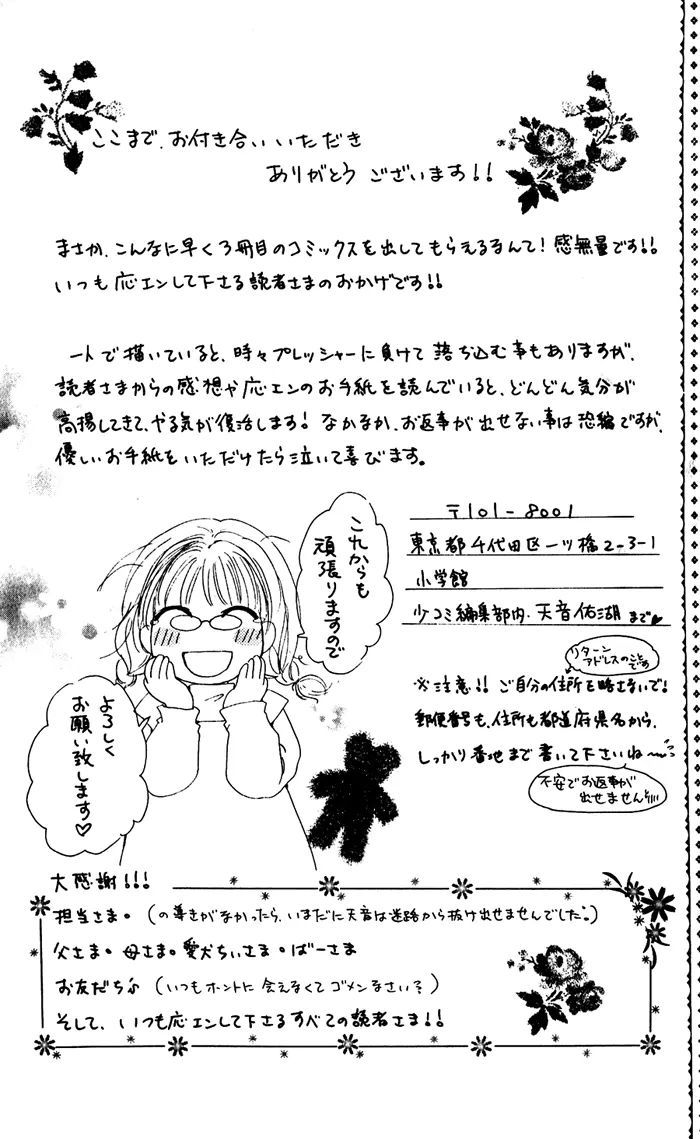 ここまで、お付き合いいただき
ありがとうございます!!
まさか、こんなに早く3冊目のコミックスを出してもらえるなんて!感無量です!!
いつも応エンして下さる読者さまのおかげです!!
一人で描いていると、時々プレッシャーに負けて落ち込む事もありますが、
読者さまからの感想や応エンのお手紙を読んでいると、どんどん気分が
高揚してきて、やる気が復活します!なかなか、お返事が出せない事は恐縮ですが、
優しいお手紙をいただけたら泣いて喜びます。
これからも
頑張りますので
よろしく
お願い致します♡
〒101-8001
東京都千代田区一ツ橋2-3-1
小学館
少コミ編集部内・天音佑湖まで♥
リターン
アドレスのこと
です
※注意!!ご自分の住所を略さないで!
郵便番号も、住所も都道府県名から、
しっかり番地まで書いて下さいね〜
不安でお返事が
出せません
大感謝!!!
担当さま。(の導きがなかったら、いまだに天音は迷路から抜け出せませんでした。)
父さま。母さま。愛犬ちぃさま。ばーさま
お友だち♪(いつもホントに会えなくてゴメンなさい?)
そして、いつも応エンして下さるすべての読者さま!!